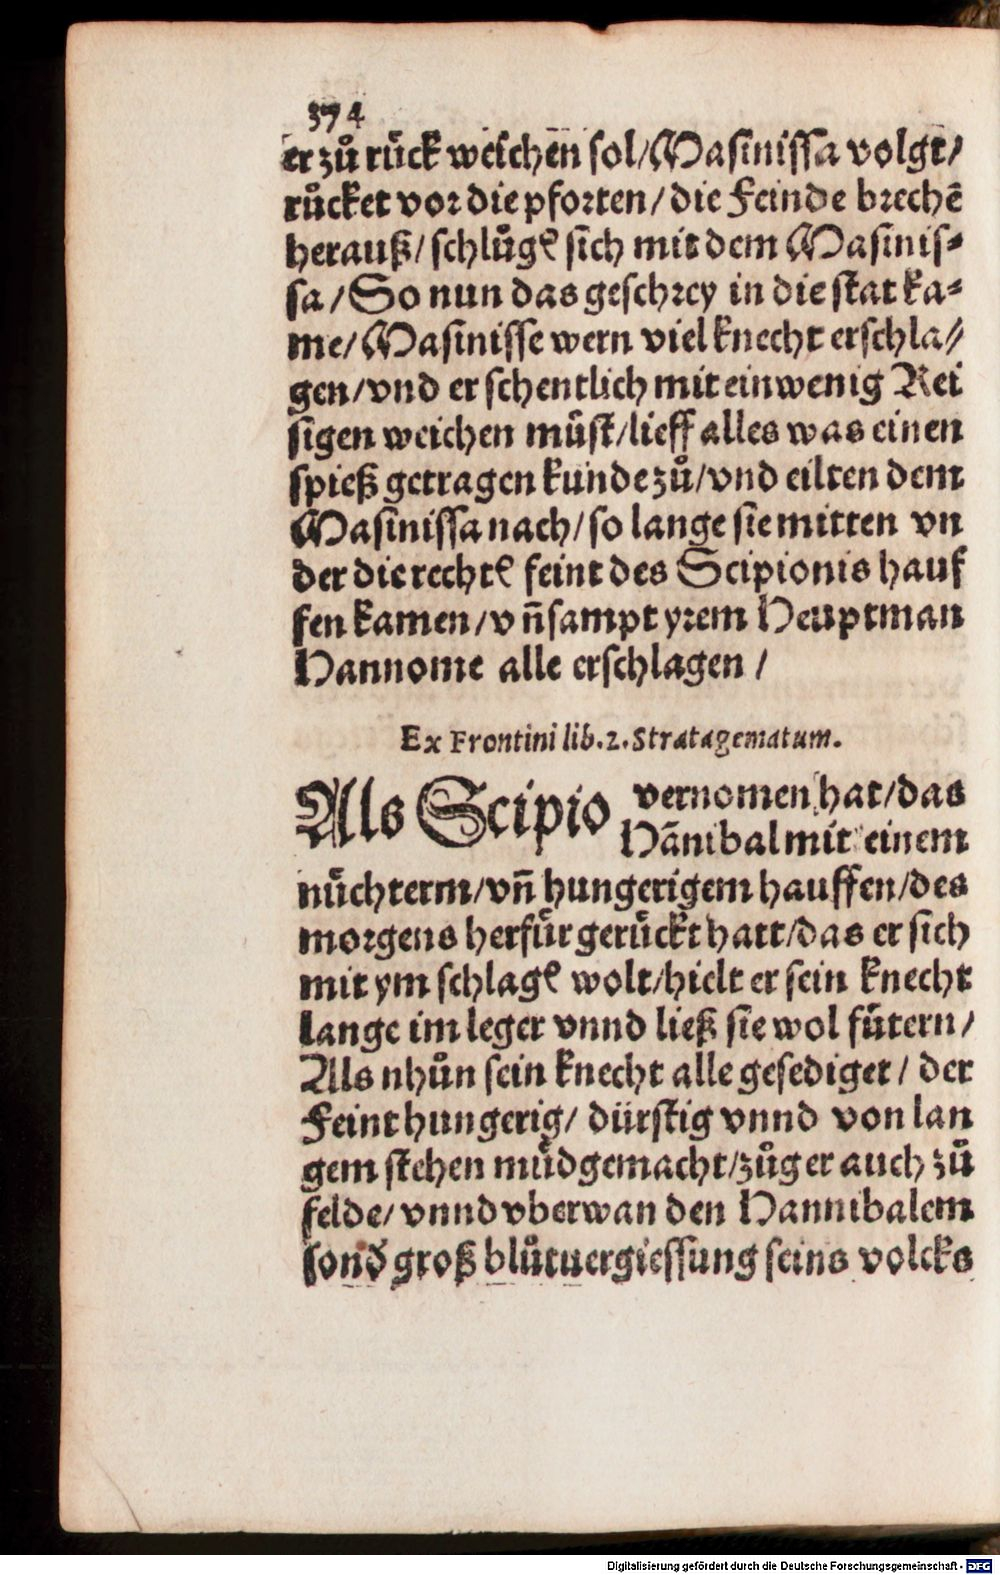 374
er zuͦ ruͤck weichen sol/Masinissa volgt/
ruͤcket vor die pforten/die Feinde brechē
herauß/schluͦgē sich mit dem Masinis⸗
sa/So nun das geschrey in die stat ka⸗
me/Masinisse wern viel knecht erschla⸗
gen/vnd er schentlich mit ein wenig Rei
sigen weichen muͤst/lieff alles was einen
spieß getragen kunde zuͦ/vnd eilten dem
Masinissa nach/so lange sie mitten vn
der die rechtē feint des Scipionis hauf
fen kamen/vñ sampt yrem Heuptman
Hannome alle erschlagen/
Ex Frontini lib.2.Stratagematum.
Als Scipio vernomen hat/das
Hānibal mit einem
nuͤchterm/vñ hungerigem hauffen/des
morgens herfuͤr geruͤckt hatt/das er sich
mit ym schlagē wolt/hielt er sein knecht
lange im leger vnnd ließ sie wol fuͤtern/
Als nhuͦn sein knecht alle gesediget/der
Feint hungerig/dürstig vnnd von lan
gem stehen muͤd gemacht/zuͦg er auch zuͦ
felde/vnnd vberwan den Hannibalem
sonđ groß bluͦtuergiessung seins volcks
Digitalisierung gefördert durch die Deutsche Forschungsgemeinschaft - DFG